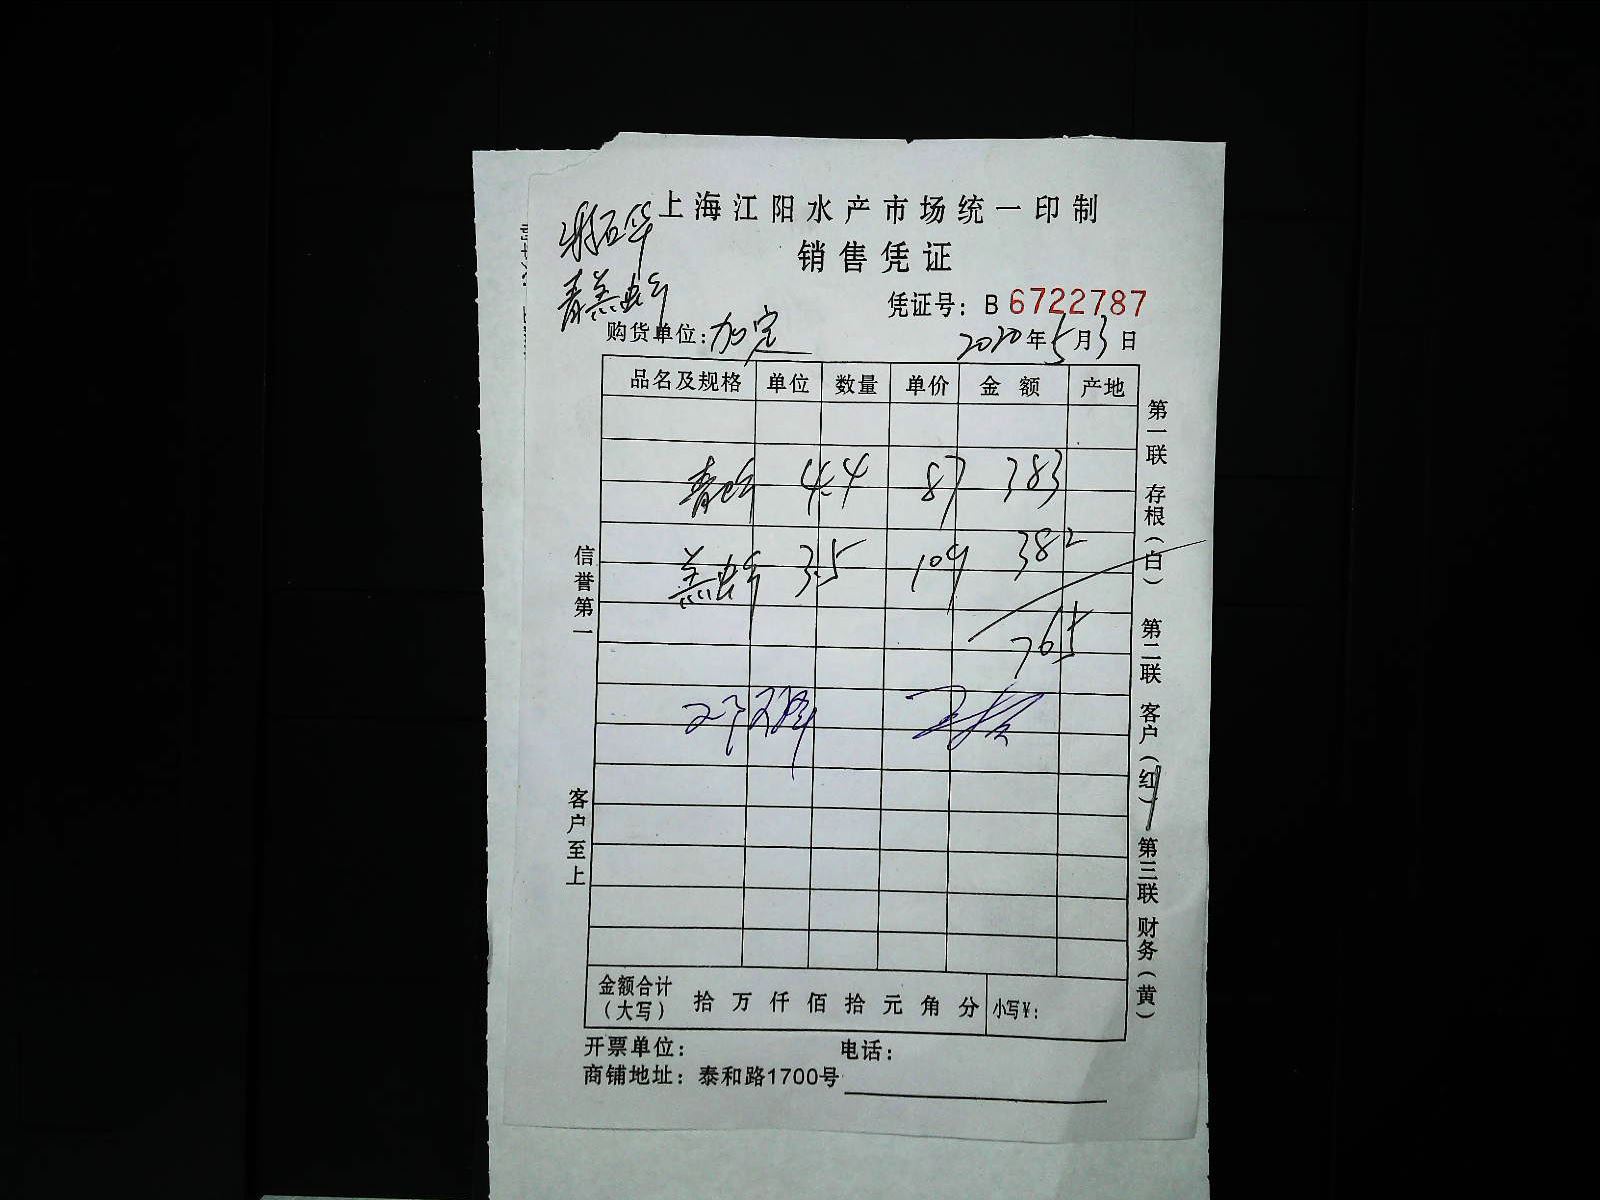 上海江阳水产市场统一印制
销售凭证
凭证号：B 6722787
购货单位：加定
2020年5月3日
品名及规格 单位 数量 单价 金额 产地
青虾 4.4 87 383
基虾 3.5 109 382
765
信誉第一
客户至上
第一联 存根（白） 第二联 客户（红） 第三联 财务（黄）
金额合计（大写） 拾 万 仟 佰 拾 元 角 分 小写￥：
开票单位： 电话：
商铺地址：泰和路1700号